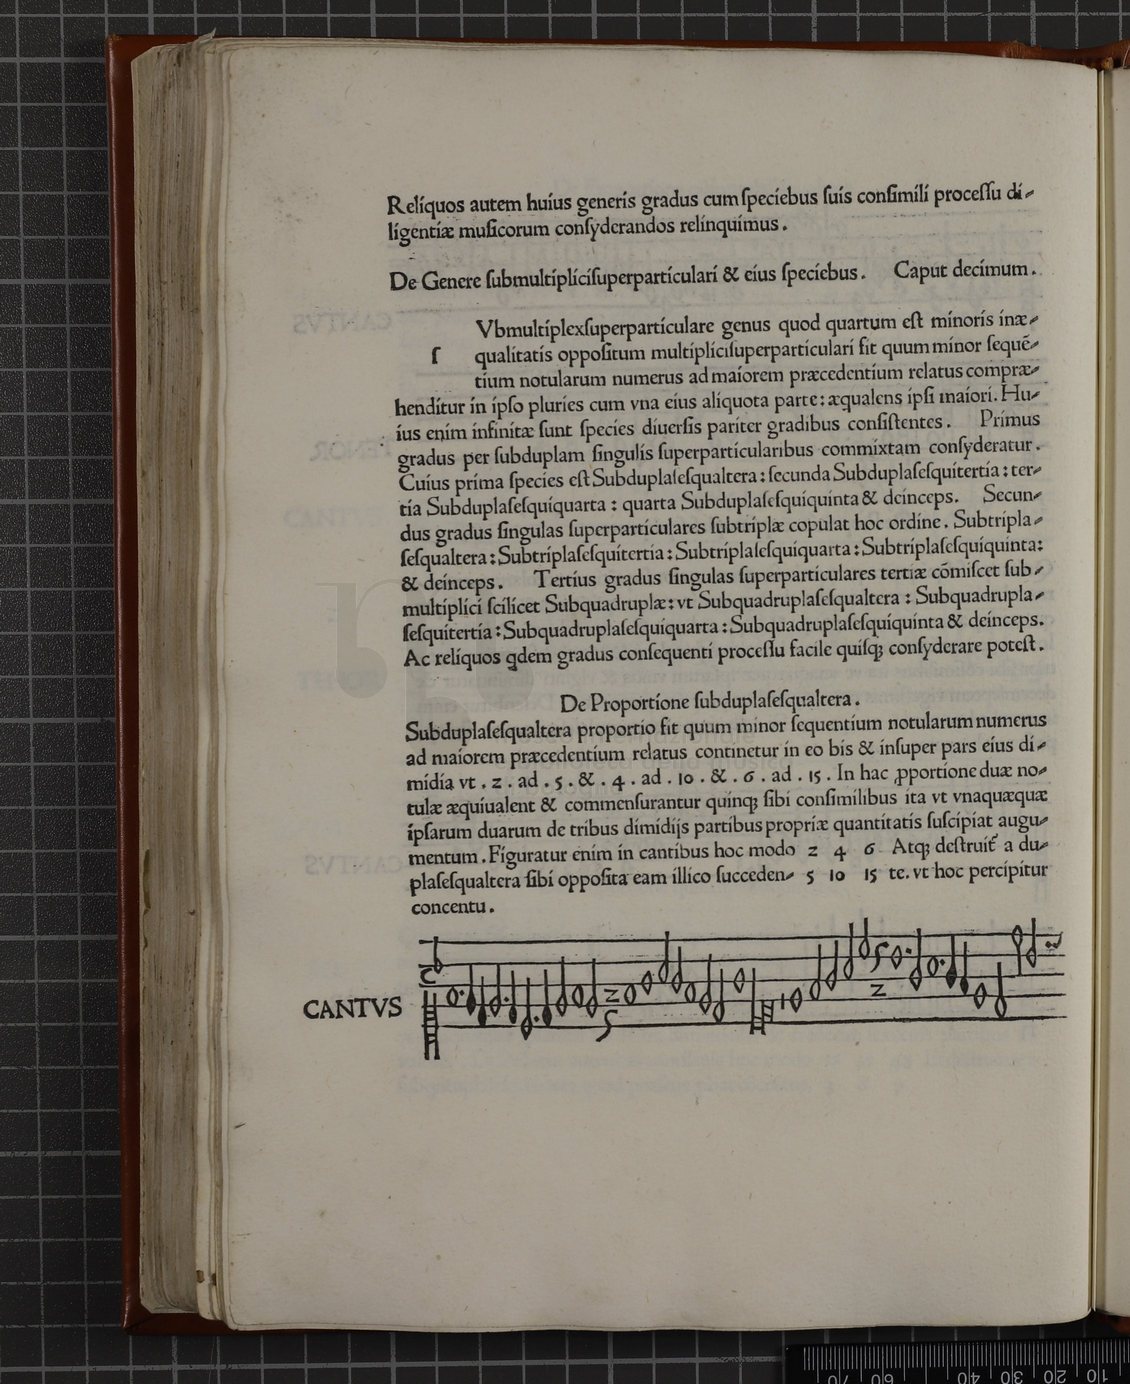 Reliquos autem huius generis gradus cum ſpeciebus ſuis conſimili proceſſu di⸗
ligentiæ muſicorum conſyderandos relinquimus.
De Genere ſubmultipliciſuperparticulari & eius ſpeciebus. Caput decimum.
Vbmultiplexſuperparticulare genus quod quartum eſt minoris inæ⸗
ſ qualitatis oppoſitum multipliciſuperparticulari fit quum minor ſequē⸗
tium notularum numerus ad maiorem præcedentium relatus compræ⸗
henditur in ipſo pluries cum vna eius aliquota parte: æqualens ipſi maiori. Hu⸗
ius enim infinitæ ſunt ſpecies diuerſis pariter gradibus conſiſtentes. Primus
gradus per ſubduplam ſingulis ſuperparticularibus commixtam conſyderatur.
Cuius prima ſpecies eſt Subduplaſeſqualtera: ſecunda Subduplaſeſquitertia: ter⸗
tia Subduplaſeſquiquarta: quarta Subduplaſeſquiquinta & deinceps. Secun⸗
dus gradus ſingulas ſuperparticulares ſubtriplæ copulat hoc ordine. Subtripla⸗
ſeſqualtera: Subtriplaſeſquitertia: Subtriplaſeſquiquarta: Subtriplaſeſquiquinta:
& deinceps. Tertius gradus ſingulas ſuperparticulares tertiæ cōmiſcet ſub⸗
multiplici ſcilicet Subquadruplæ: vt Subquadruplaſeſqualtera: Subquadrupla⸗
ſeſquitertia: Subquadruplaſeſquiquarta: Subquadruplaſeſquiquinta & deinceps.
Ac reliquos qdem gradus conſequenti proceſſu facile quiſq; conſyderare poteſt.
De Proportione ſubduplaſeſqualtera.
Subduplaſeſqualtera proportio fit quum minor ſequentium notularum numerus
ad maiorem præcedentium relatus continetur in eo bis & inſuper pars eius di⸗
midia vt. 2. ad. 5. &. 4. ad. 10. &. 6. ad. 15. In hac ꝓportione duæ no⸗
tulæ æquiualent & commenſurantur quinq; ſibi conſimilibus ita vt vnaquæquæ
ipſarum duarum de tribus dimidijs partibus propriæ quantitatis ſuſcipiat augu⸗
mentum. Figuratur enim in cantibus hoc modo 2 4 6 Atq; deſtruit̄ a du⸗
plaſeſqualtera ſibi oppoſita eam illico ſucceden⸗ 5 10 15 te. vt hoc percipitur
concentu.
CANTVS
2
5
5
2